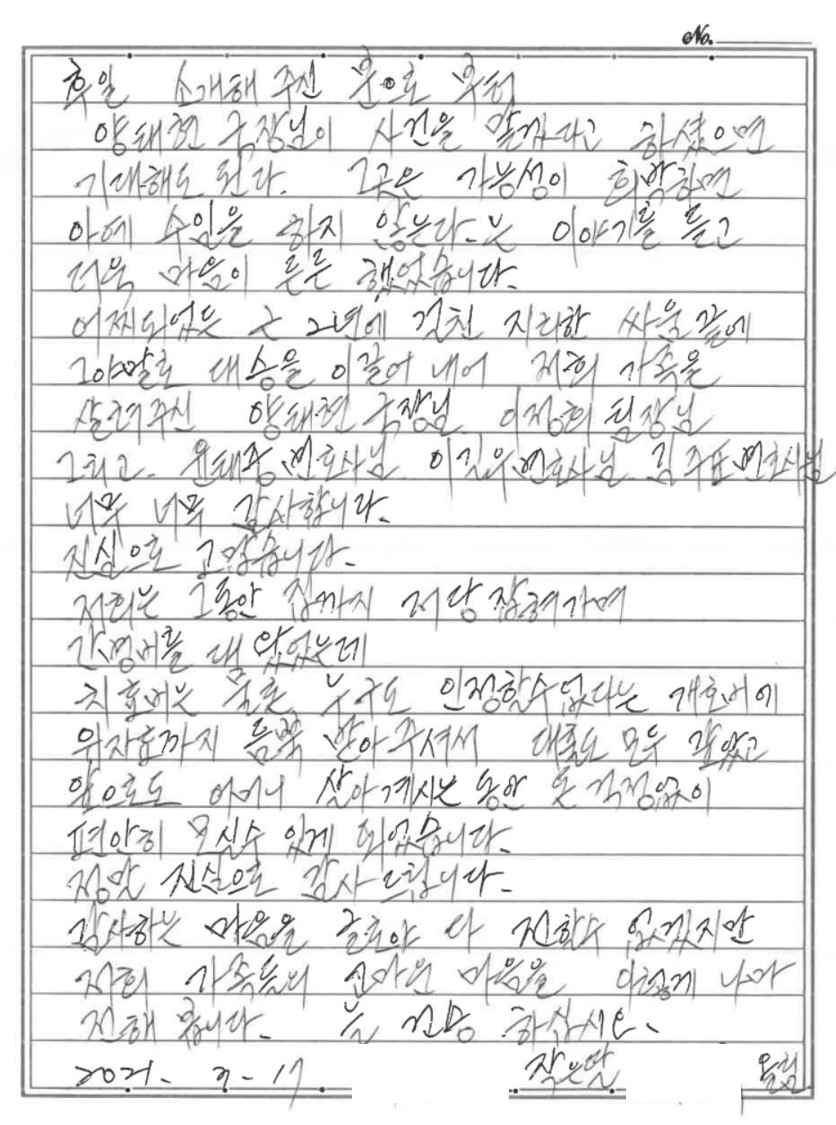 No.
후일 소개해 주신 분으로 부터
양태현 국장님이 사건을 맡깠다고 하셨으면
기대해도 된다. 그곳은 가능성이 희박하면
아예 수임을 하지 않는다-는 이야기를 듣고
더욱 마음이 든든 했었습니다.
어찌되었든 근 2년에 걸친 지리한 싸움 끝에
그야말로 대승을 이끌어 내어 저희 가족을
살려주신 양태현 국장님 이정희 팀장님
그리고. 윤태중 변호사님 이길우변호사님 김주표변호사님
너무 너무 감사합니다.
진심으로 고맙습니다.
저희는 그동안 집까지 저당 잡혀가며
간병비를 대 왔었는데
치료비는 물론, 누구도 인정할수없다는 개호비에
위자료까지 듬뿍 받아주셔서 대출도 모두 갚았고
앞으로도 어머니 살아계시는 동안 돈 걱정없이
편안히 모실수 있게 되었습니다.
정말 진심으로 감사 드립니다.
감사하는 마음을 글로야 다 전할수 없겠지만
저희 가족들의 고마운 마음을 이렇게 나마
전해 봅니다. 늘 건강 하십시요.
2021- 9-17 작은딸 올림